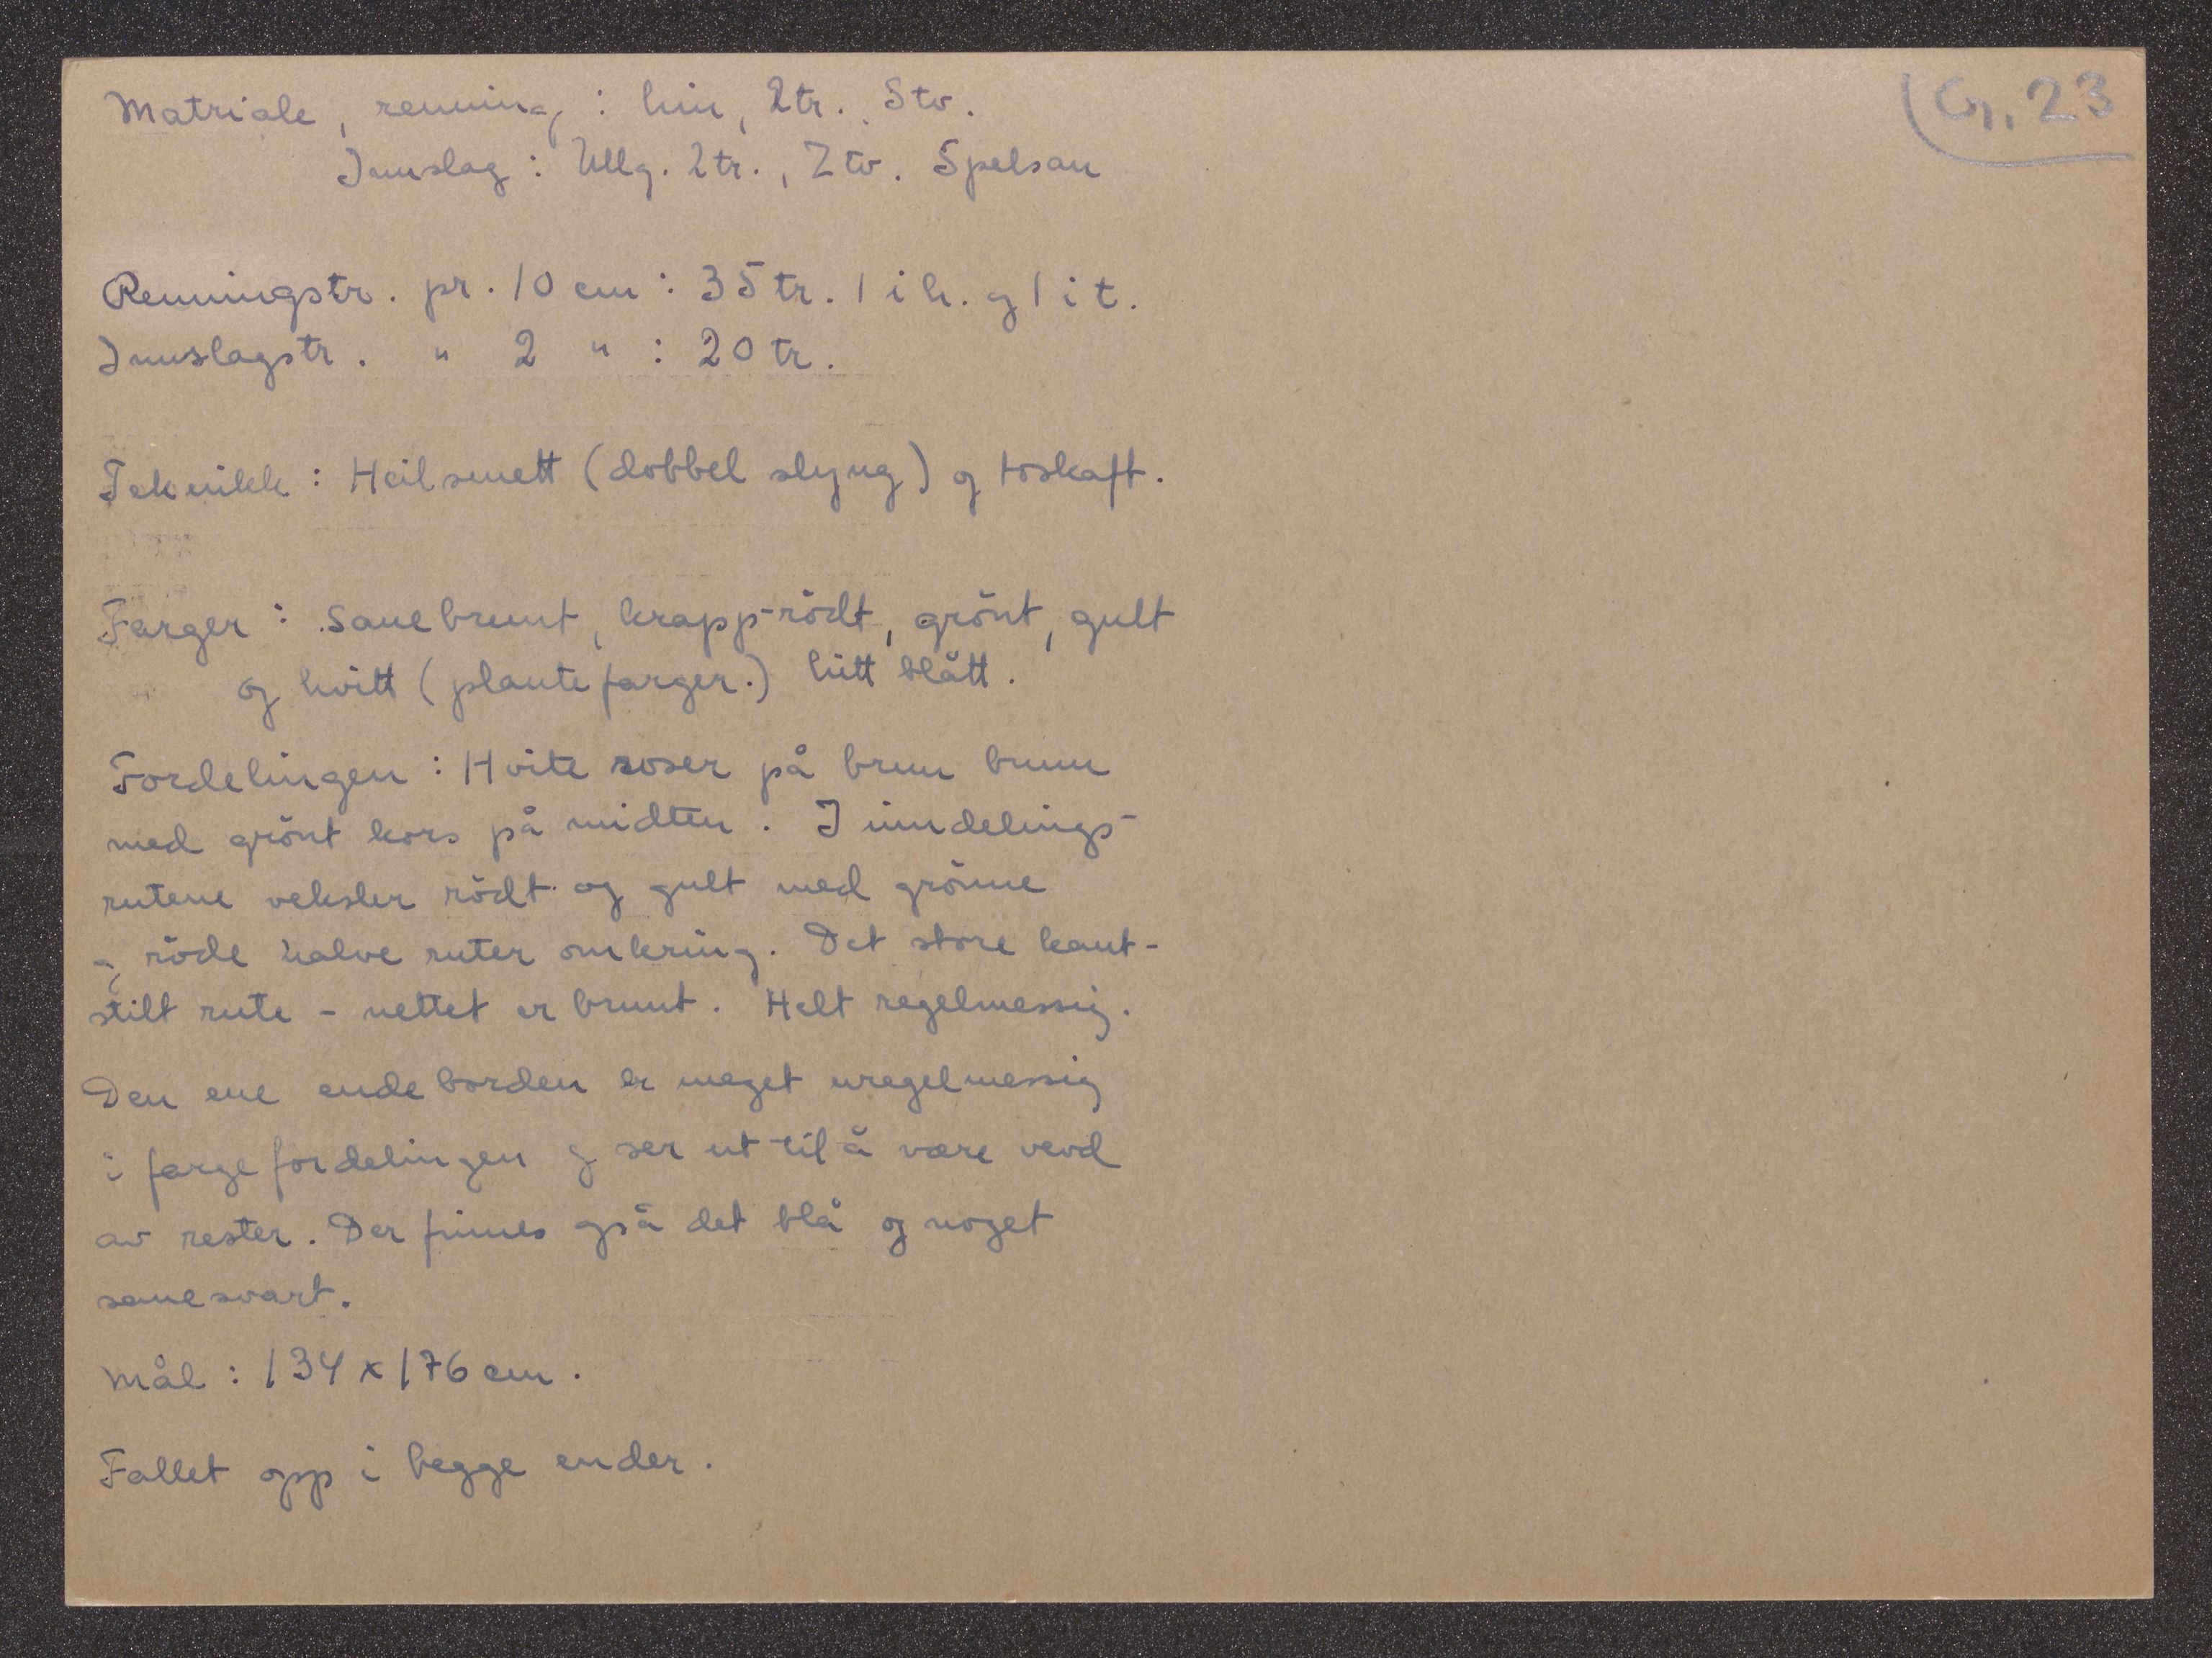 Gr. 23
Matriale, renning : lin, 2tr. Stv.
Innslag : Ullg. 2tr., Ztv. Spelsau
Renningstr. pr. 10 cm : 35 tr. 1 i h. og 1 i t.
Innslagstr. " 2 " : 20 tr.
Teknikk : Heilsmett (dobbel slyng) og toskaft.
Farger : Sauebrunt, krapp-rödt, grönt, gult
og hvitt (plantefarger.) litt blått.
Fordelingen : Hvite roser på brun bunn
med grönt kors på midten. I inndelings-
rutene veksler rödt og gult med grönne
og röde halve ruter omkring. Det store kant-
stilt rute - nettet er brunt. Helt regelmessig.
Den ene endeborden er meget uregelmessig
i fargefordelingen og ser ut til å være vevd
av rester. Der finnes også det blå og noget
sauesvart.
Mål : 134 x 176 cm.
Fallet opp i begge ender.